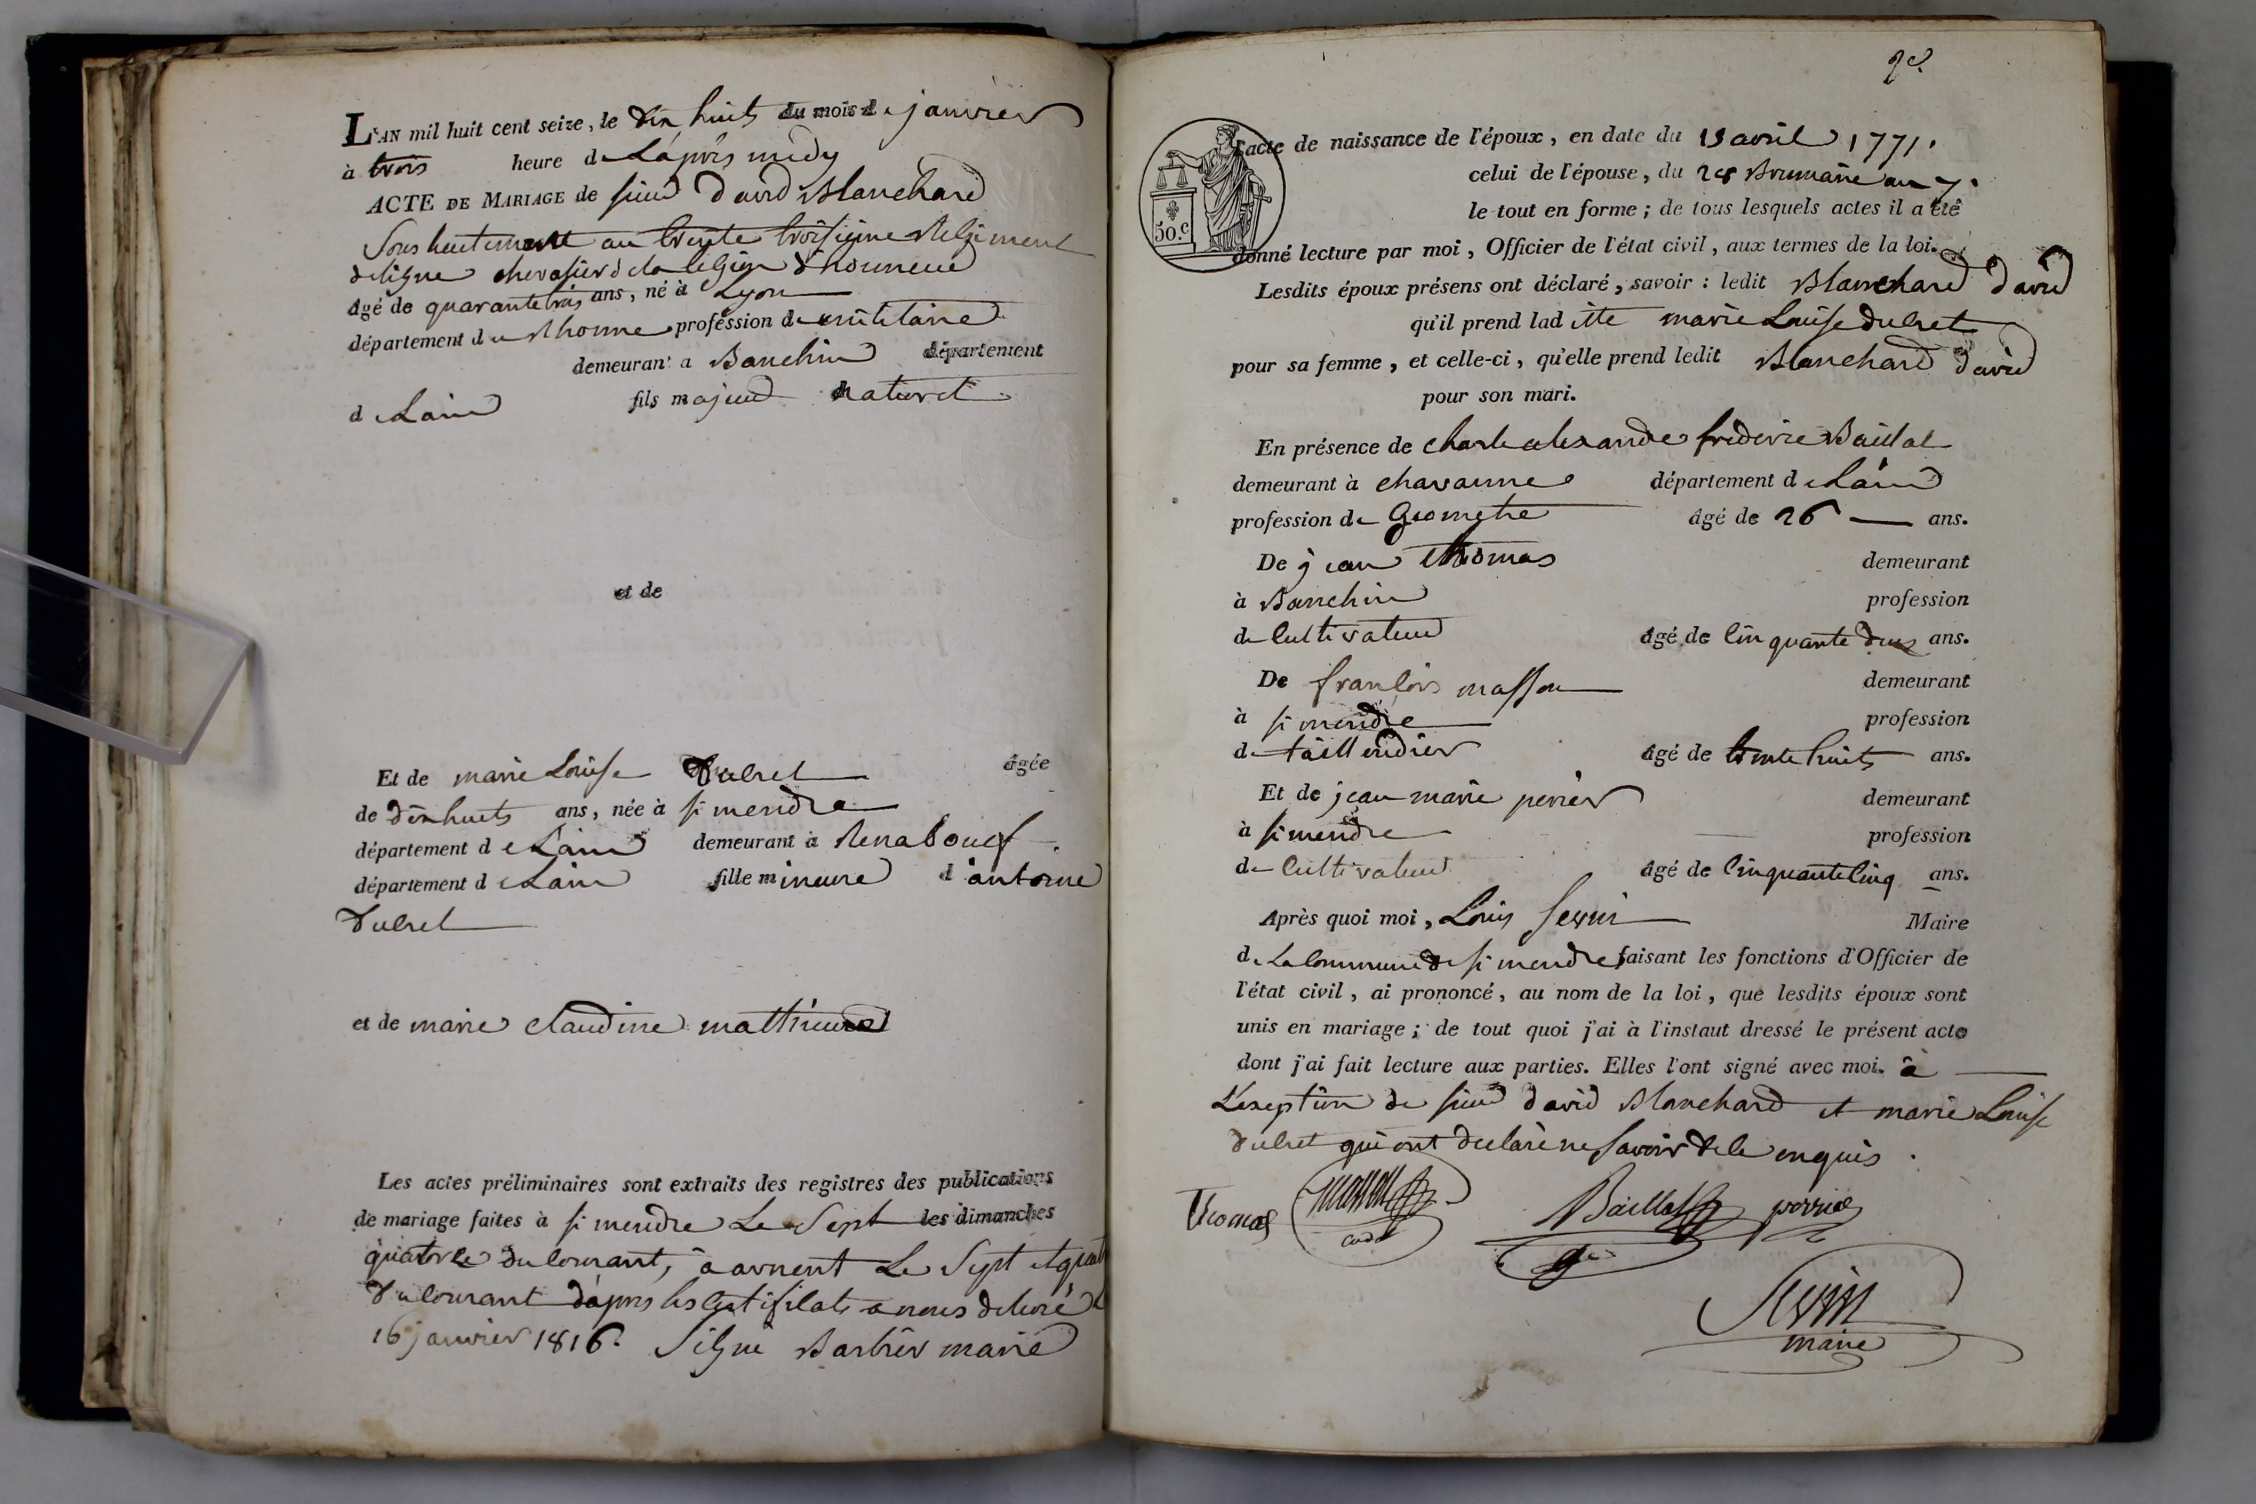 L'AN mil huit cent seize, le dix huits du mois de janvier
à trois heure de Laprês midy
ACTE DE MARIAGE de sieur david Blanchard
Sous lieutennant au trente troisieme Regiment
deligne chevalier de la legion d'honneur
âgé de quarante trois ans, né à Lyon
département du Rhonne profession de militaire
demeurant a Banchin département
de Lain fils majeur naturel
et de
Et de marie Louise Dubret âgée
de dix huits ans, née à simendre
département de Lain demeurant à Renaboeuf
département de Lain fille mineure d'antoine
Dubret
et de marie claudine mathieux
Les actes préliminaires sont extraits des registres des publications
de mariage faites à simendre Le Sept les dimanches
quatorze du courant, à arnent Le Sept et
du courant d'apres les Certifilats a nous delivré
16 janvier 1816. Signé Barbier marie
l'acte de naissance de l'époux, en date du 13 avril 1771.
celui de l'épouse, du 28 Brumaire an 7.
le tout en forme; de tous lesquels actes il a été
donné lecture par moi, Officier de l'état civil, aux termes de la loi.
50.c
Lesdits époux présens ont déclaré, savoir: ledit Blanchard david
qu'il prend laditte marie Louise dubret
pour sa femme, et celle-ci, qu'elle prend ledit Blanchard david
pour son mari.
En présence de charle alexandre frederic Baillat
demeurant à chavanne département de Lain
profession de Geometre âgé de 26 ans.
De jean thomas demeurant
à Banchin profession
de Cultivateur âgé de Cinquante deux ans.
De francois masson demeurant
à simendre profession
de taillendier âgé de trente huits ans.
Et de jean marie perrier demeurant
à simendre profession
de Cultivateur âgé de Cinquante Cinq ans.
Après quoi moi, Louis Sevin Maire
de La Commune de simendre faisant les fonctions d'Officier de
l'état civil, ai prononcé, au nom de la loi, que lesdits époux sont
unis en mariage; de tout quoi j'ai à l'instaut dressé le présent acte
dont j'ai fait lecture aux parties. Elles l'ont signé avec moi. à
L'exeption de sieur david Blanchard et marie Louise
dubret qui ont declaré ne savoir de le enquis.
Thomas masson Baillat perrier
Sevin
maire